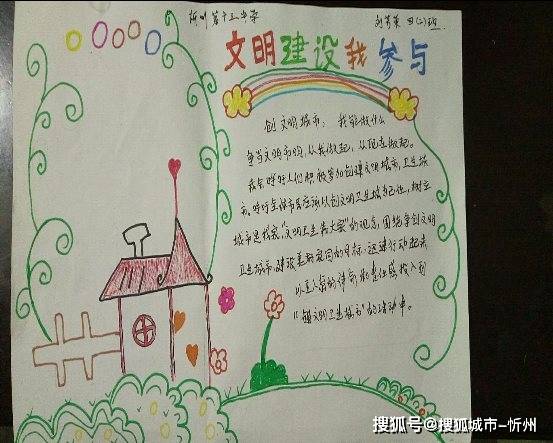 忻州第十三中学
刘芳菲 四(二)班
文明建设我参与
创文明城市，我能做什么
争当文明市民，从我做起，从现在做起。
我会呼吁人们积极参加创建文明城市，卫生城
市。呼吁全城市民应该以创文明卫生城为己任，树立
城市是我家，"文明卫生靠大家"的观念，围绕争创文明
卫生城市，建设美好家园的目标，迅速行动起来
以主人翁的
投入到
"创文明卫生城市"的活动中。
搜狐号@搜狐城市-忻州